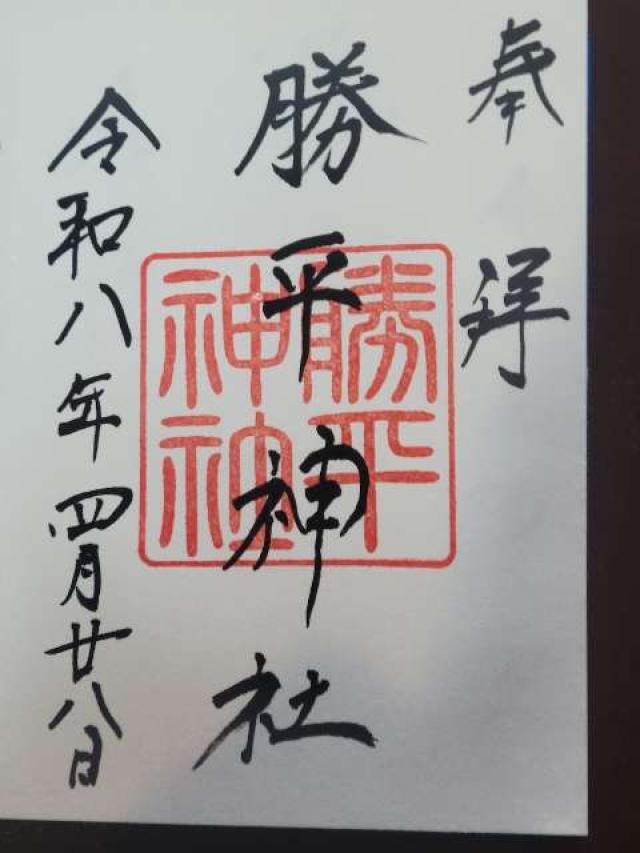 奉拝
勝平神社
勝平
神社
令和八年四月廿八日